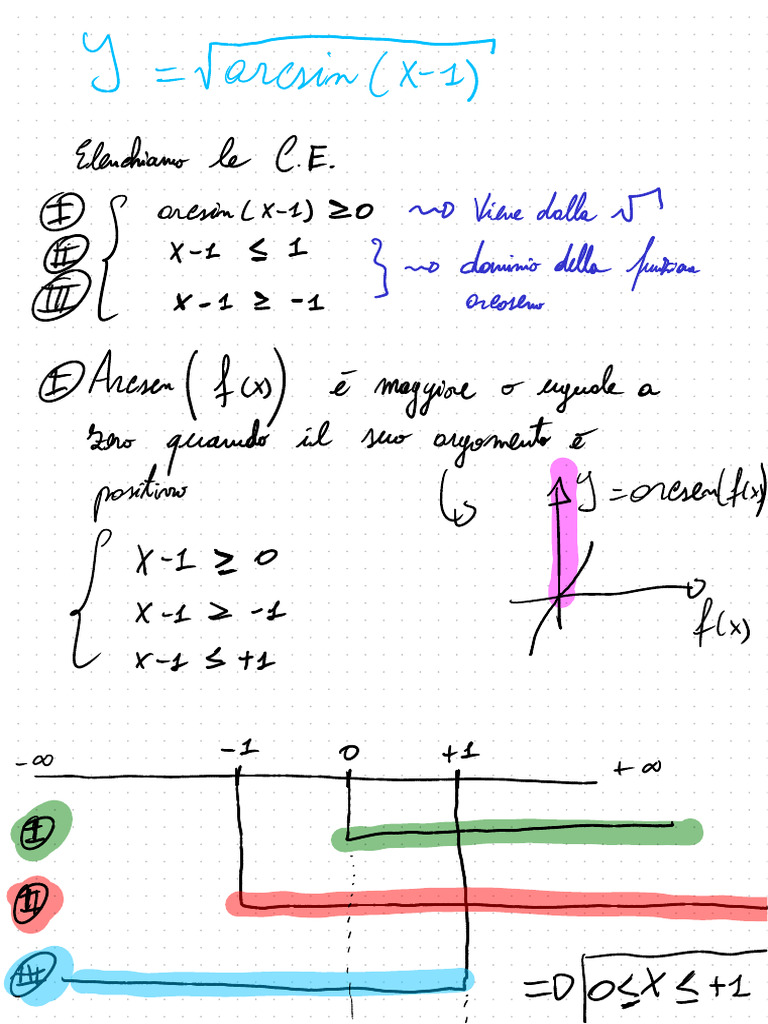 y = √arcsin(x-1)
Elenchiamo le C.E.
I arcsin(x-1) ≥ 0 ~> Viene dalla √
II x-1 ≤ 1
III x-1 ≥ -1
~> dominio della funzione
arcoseno
I Arcsen(f(x)) è maggiore o uguale a
zero quando il suo argomento è
positivo
y = arcsen(f(x))
f(x)
x-1 ≥ 0
x-1 ≥ -1
x-1 ≤ +1
-∞ -1 0 +1 +∞
I
II
III
=> 0 ≤ x ≤ +1